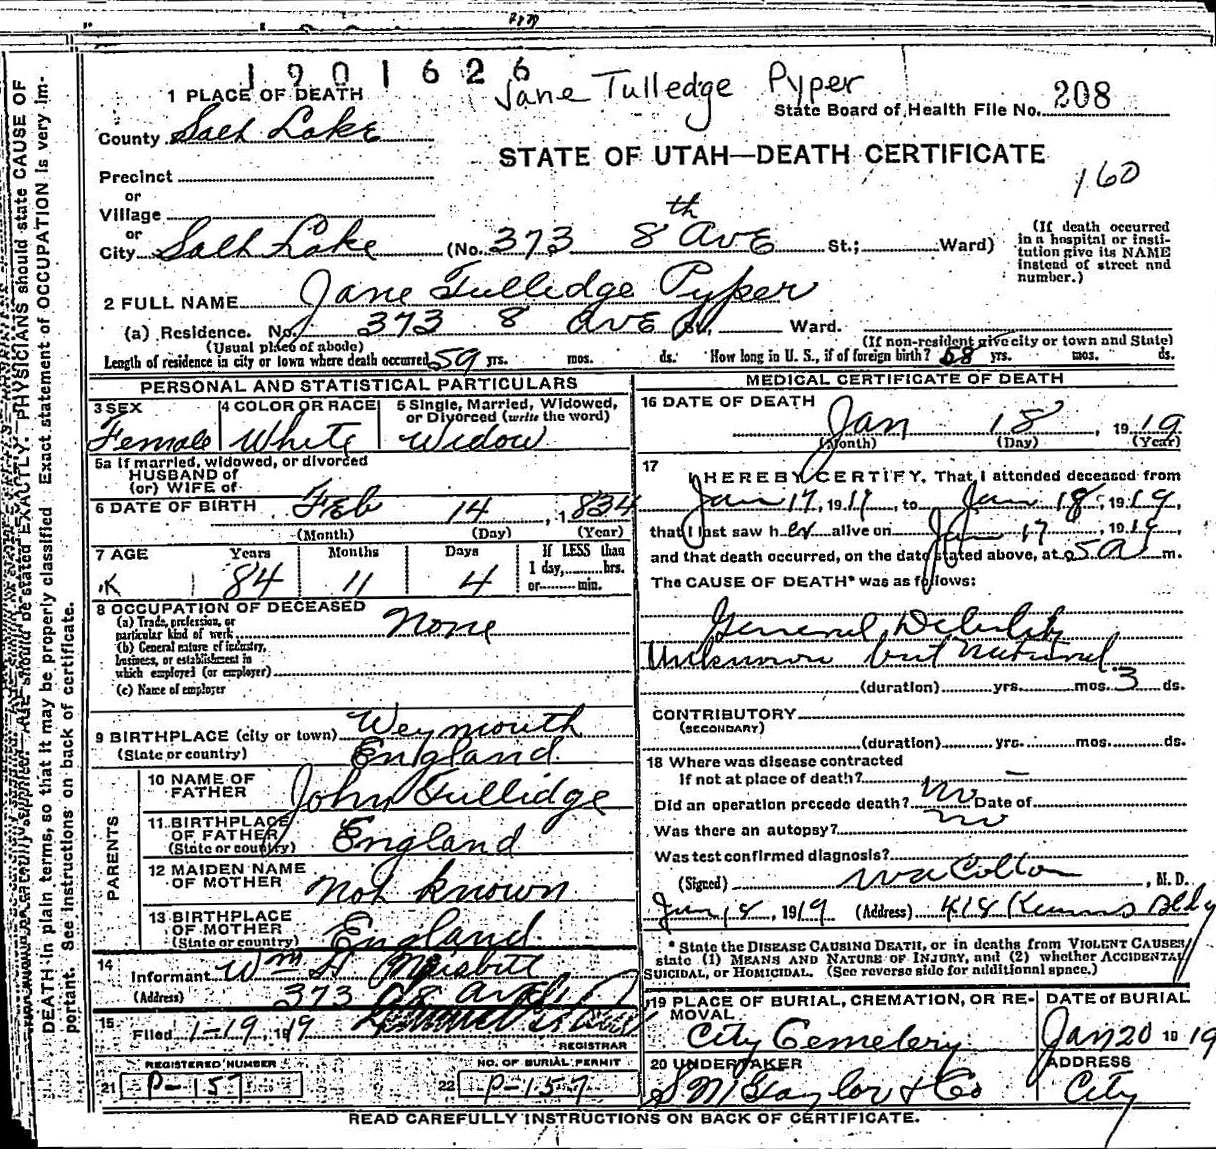 1901626
Jane Tulledge Pyper
1 PLACE OF DEATH
State Board of Health File No. 208
County Salt Lake
STATE OF UTAH—DEATH CERTIFICATE
160
Precinct
or
Village
or
City Salt Lake (No. 373 8th Ave St.; Ward)
(If death occurred in a hospital or institution give its NAME instead of street and number.)
2 FULL NAME Jane Tullidge Pyper
(a) Residence. No. 373 8 Ave St., Ward.
(Usual place of abode) (If non-resident give city or town and State)
Length of residence in city or town where death occurred 59 yrs. mos. ds. How long in U. S., if of foreign birth? 58 yrs. mos. ds.
PERSONAL AND STATISTICAL PARTICULARS
3 SEX 4 COLOR OR RACE 5 Single, Married, Widowed, or Divorced (write the word)
Female White Widow
5a If married, widowed, or divorced
HUSBAND of
(or) WIFE of
6 DATE OF BIRTH Feb 14, 1834
(Month) (Day) (Year)
7 AGE Years Months Days If LESS than
1 day, hrs.
or min.
84 11 4
8 OCCUPATION OF DECEASED
(a) Trade, profession, or
particular kind of work None
(b) General nature of industry,
business, or establishment in
which employed (or employer)
(c) Name of employer
9 BIRTHPLACE (city or town) Weymouth
(State or country) England
PARENTS
10 NAME OF FATHER John Tullidge
11 BIRTHPLACE OF FATHER
(State or country) England
12 MAIDEN NAME OF MOTHER Not known
13 BIRTHPLACE OF MOTHER
(State or country) England
14
Informant Wm
(Address) 373 8 Ave
15
Filed 1-19, 1919
REGISTRAR
REGISTERED NUMBER NO. OF BURIAL PERMIT
21 P-157 22 P-157
MEDICAL CERTIFICATE OF DEATH
16 DATE OF DEATH
Jan 18, 1919
(Month) (Day) (Year)
17
I HEREBY CERTIFY, That I attended deceased from
Jan 17, 1919, to Jan 18, 1919,
that I last saw her alive on Jan 17, 1919
and that death occurred, on the date stated above, at 5 a m.
The CAUSE OF DEATH* was as follows:
General Debility
Unknown but natural
(duration) yrs. mos. 3 ds.
CONTRIBUTORY
(SECONDARY)
(duration) yrs. mos. ds.
18 Where was disease contracted
If not at place of death? —
Did an operation precede death? no Date of
Was there an autopsy? no
Was test confirmed diagnosis?
(Signed) W A Colton, M. D.
Jan 18, 1919 (Address) 418 Kearns Bldg
* State the DISEASE CAUSING DEATH, or in deaths from VIOLENT CAUSES,
state (1) MEANS AND NATURE OF INJURY, and (2) whether ACCIDENTAL,
SUICIDAL, or HOMICIDAL. (See reverse side for additional space.)
19 PLACE OF BURIAL, CREMATION, OR REMOVAL DATE of BURIAL
City Cemetery Jan 20 1919
20 UNDERTAKER ADDRESS
S M Taylor & Co City
READ CAREFULLY INSTRUCTIONS ON BACK OF CERTIFICATE.
should be stated EXACTLY. PHYSICIANS should state CAUSE OF
DEATH in plain terms, so that it may be properly classified. Exact statement of OCCUPATION is very im-
portant. See instructions on back of certificate.